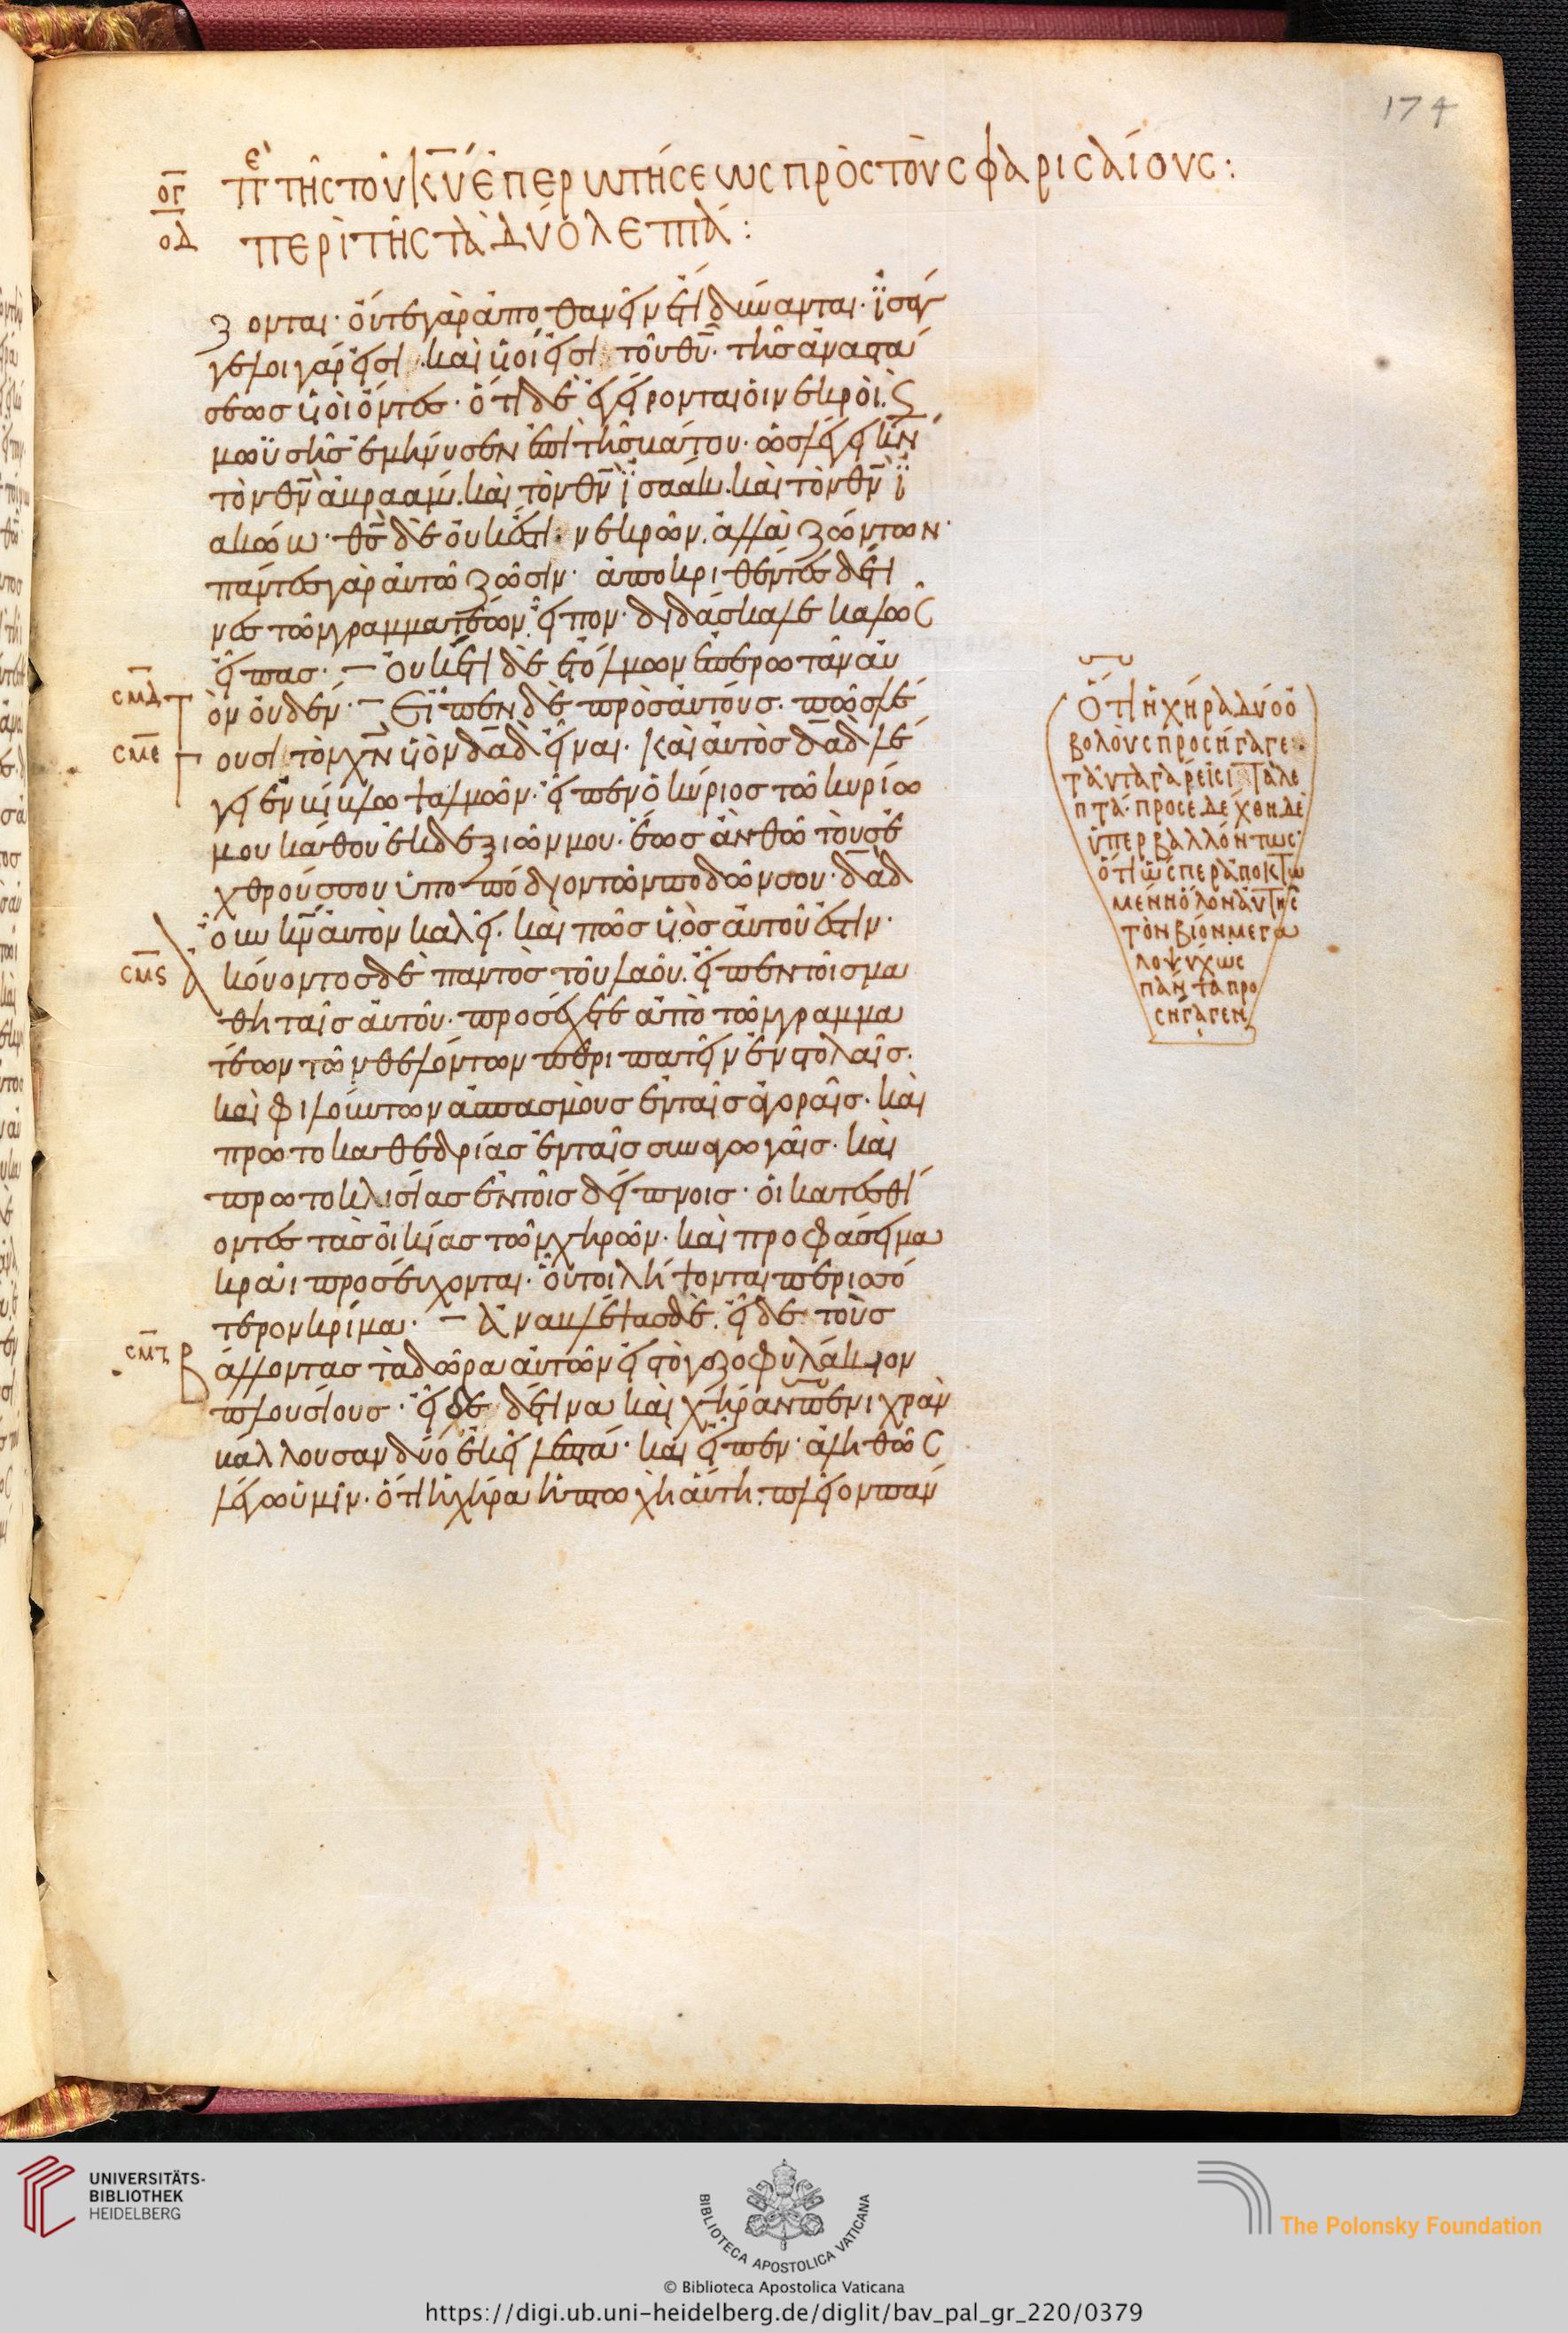 174
ογ πε τῆς τοῦ κυ ἐπερωτήσεως πρὸς τοὺς φαρισαίους:
οδ περὶ τῆς τὰ δύο λεπτά:
ζονται· οὔτε γὰρ ἀποθανεῖν ἔτι δύνανται· ἰσάγ
γελοι γάρ εἰσι· καὶ υἱοί εἰσι τοῦ θυ· τῆς ἀναστά
σεως υἱοὶ ὄντες· ὅτι δὲ ἐγείρονται οἱ νεκροὶ· ϛ
μωϋσῆς ἐμήνυσεν ἐπὶ τῆς βάτου· ὡς λέγει κν
τὸν θν ἀβραάμ· καὶ τὸν θν ἰσαάκ· καὶ τὸν θν ἰ
ακώβ· θς δὲ οὐκ ἔστι νεκρῶν· ἀλλὰ ζώντων·
πάντες γὰρ αὐτῶ ζῶσιν· ἀποκριθέντες δέ τι
νες τῶν γραμματέων εἶπον· διδάσκαλε καλῶς
εἶπας· οὐκ ἔτι δὲ ἐτόλμων ἐπερωτᾶν αὐ
σμδ τὸν οὐδέν· Εἶπεν δὲ πρὸς αὐτούς· πῶς λέ
σμε γουσι τὸν χν υἱὸν δαδ εἶναι· καὶ αὐτὸς δαδ λέ
γει ἐν βίβλω ψαλμῶν· εἶπεν ὁ κύριος τῶ κυρίω
μου κάθου ἐκ δεξιῶν μου· ἕως ἂν θῶ τοὺς ἐ
χθρούς σου ὑποπόδιον τῶν ποδῶν σου· δαδ
οὖν κν αὐτὸν καλεῖ· καὶ πῶς υἱὸς αὐτοῦ ἐστιν·
σμϛ ἀκούοντος δὲ παντὸς τοῦ λαοῦ· εἶπεν τοῖς μα
θηταῖς αὐτοῦ· προσέχετε ἀπὸ τῶν γραμμα
τέων τῶν θελόντων περιπατεῖν ἐν στολαῖς·
καὶ φιλούντων ἀσπασμοὺς ἐν ταῖς ἀγοραῖς· καὶ
πρωτοκαθεδρίας ἐν ταῖς συναγωγαῖς· καὶ
πρωτοκλισίας ἐν τοῖς δείπνοις· οἱ κατεσθί
οντες τὰς οἰκίας τῶν χηρῶν· καὶ προφάσει μα
κρᾶι προσεύχονται· οὗτοι λήψονται περισσό
τερον κρίμα· Ἀναβλέψας δὲ εἶδε τοὺς
σμζ βάλλοντας τὰ δῶρα αὐτῶν εἰς τὸ γαζοφυλάκιον
πλουσίους· εἶδε δέ τινα καὶ χήραν πενιχρὰν
βάλλουσαν δύο ἐκεῖ λεπτά· καὶ εἶπεν· ἀληθῶς
λέγω ὑμῖν· ὅτι ἡ χήρα ἡ πτωχὴ αὕτη· πλεῖον πάν
Ὅτι ἡ χήρα δύο ὀ
βολοὺς προσήγαγε·
ταῦτα γάρ εἰσι τὰ λε
πτά· προσεδέχθη δὲ
ὑπερβαλλόντως·
ὅτι ὥσπερ ἀποκτω
μένη ὅλον αὐτῆς
τὸν βίον μεγα
λοψύχως
πάντα προ
σήγαγεν
UNIVERSITÄTS-
BIBLIOTHEK
HEIDELBERG
BIBLIOTECA APOSTOLICA VATICANA
The Polonsky Foundation
© Biblioteca Apostolica Vaticana
https://digi.ub.uni-heidelberg.de/diglit/bav_pal_gr_220/0379